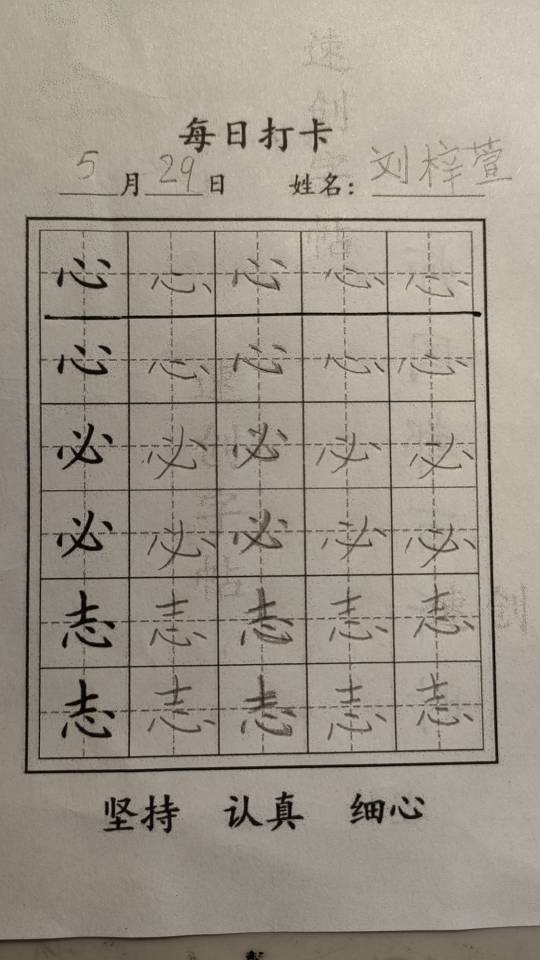 每日打卡
5月29日 姓名：刘梓萱
心心心心心
心心心心心
必必必必必
必必必必必
志志志志志
志志志志志
坚持 认真 细心